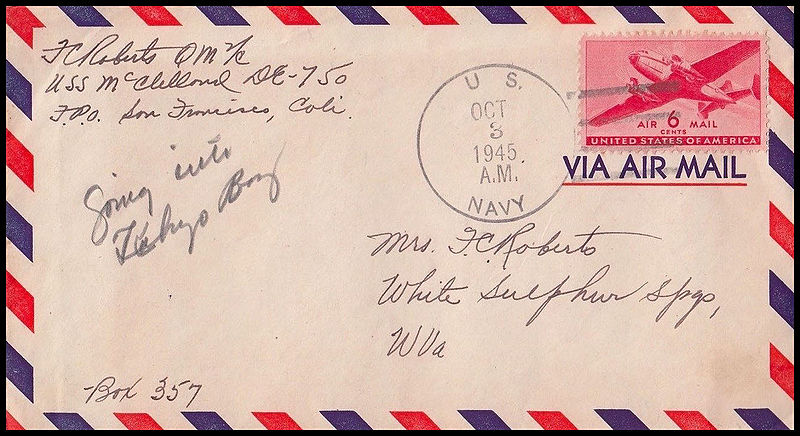 FC Roberts QM 2/c
USS McClelland DE-750
F.P.O. San Francisco, Cali.
Going into
Tokyo Bay
U.S.
OCT
3
1945
A.M.
NAVY
AIR 6 MAIL
CENTS
UNITED STATES OF AMERICA
VIA AIR MAIL
Mrs. F.C. Roberts
White Sulphur Spgs,
W Va
Box 357